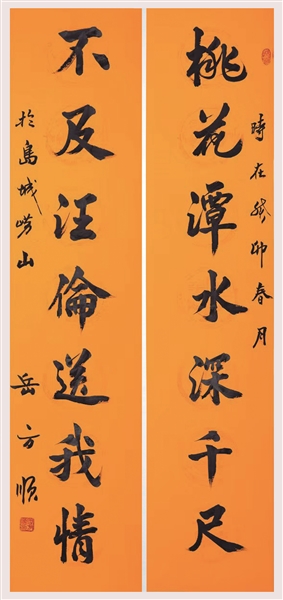 桃花潭水深千尺
時在癸卯春月
不及汪倫送我情
於島城嶗山
岳方順